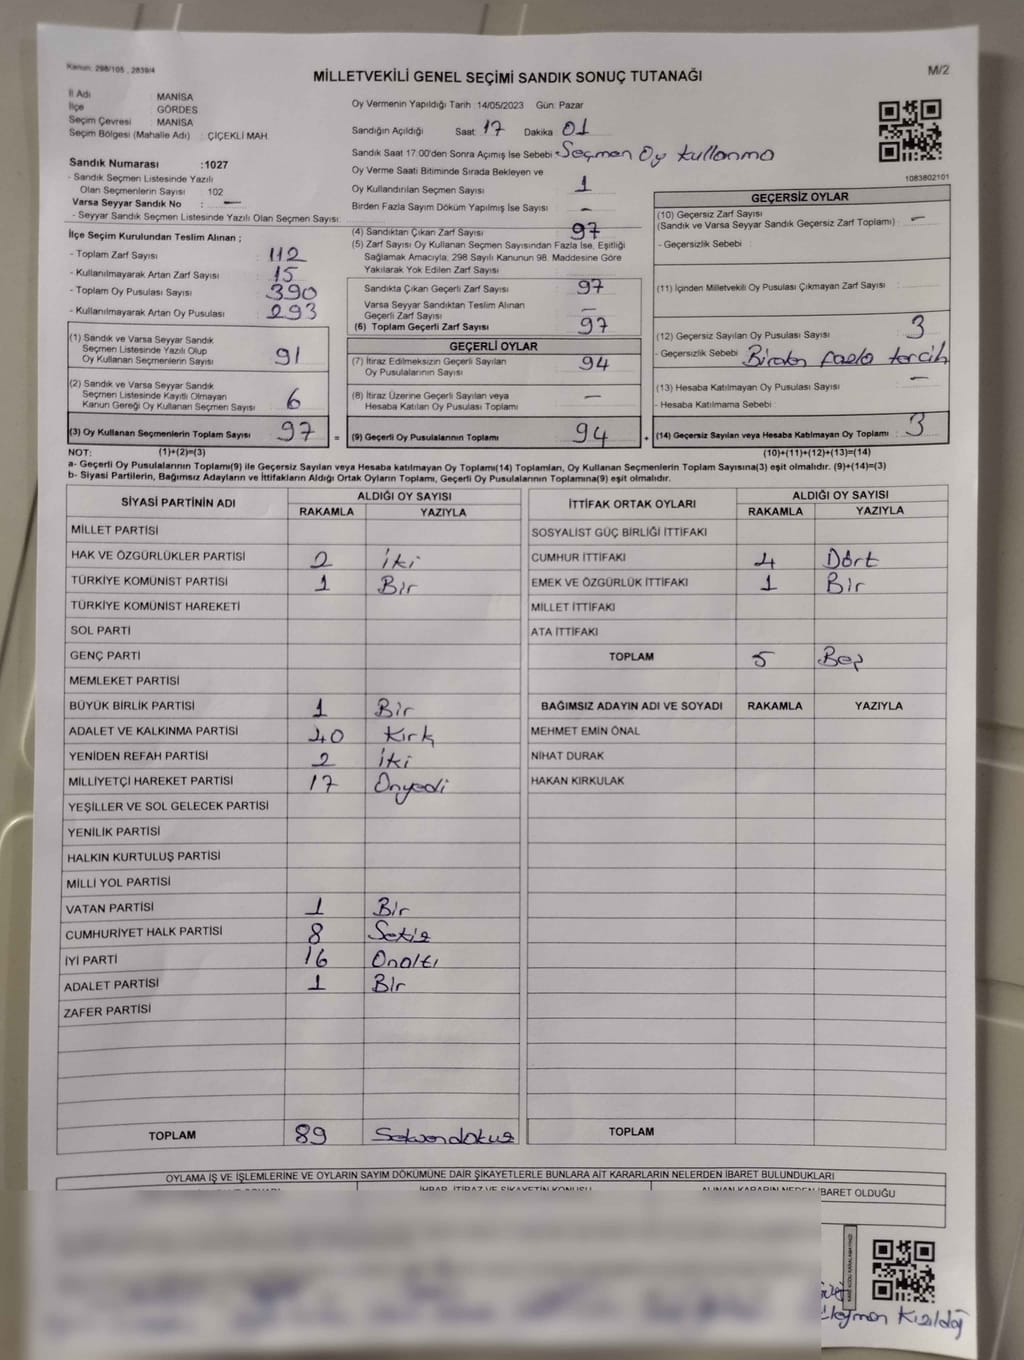 Kanun: 298/105 , 2839/4
MİLLETVEKİLİ GENEL SEÇİMİ SANDIK SONUÇ TUTANAĞI
M/2
İl Adı MANİSA
İlçe GÖRDES
Seçim Çevresi MANİSA
Seçim Bölgesi (Mahalle Adı) : ÇİÇEKLİ MAH.
Sandık Numarası :1027
- Sandık Seçmen Listesinde Yazılı
Olan Seçmenlerin Sayısı : 102
Varsa Seyyar Sandık No : —
- Seyyar Sandık Seçmen Listesinde Yazılı Olan Seçmen Sayısı:
Oy Vermenin Yapıldığı Tarih :14/05/2023 Gün: Pazar
Sandığın Açıldığı Saat 17 Dakika 01
Sandık Saat 17:00'den Sonra Açımış İse Sebebi: Seçmen Oy kullanma
Oy Verme Saati Bitiminde Sırada Bekleyen ve
Oy Kullandırılan Seçmen Sayısı 1
Birden Fazla Sayım Döküm Yapılmış İse Sayısı –
1083802101
İlçe Seçim Kurulundan Teslim Alınan ;
- Toplam Zarf Sayısı : 112
- Kullanılmayarak Artan Zarf Sayısı : 15
- Toplam Oy Pusulası Sayısı : 390
- Kullanılmayarak Artan Oy Pusulası : 293
(1) Sandık ve Varsa Seyyar Sandık
Seçmen Listesinde Yazılı Olup
Oy Kullanan Seçmenlerin Sayısı 91
(2) Sandık ve Varsa Seyyar Sandık
Seçmen Listesinde Kayıtlı Olmayan
Kanun Gereği Oy Kullanan Seçmen Sayısı 6
(3) Oy Kullanan Seçmenlerin Toplam Sayısı 97
(4) Sandıktan Çıkan Zarf Sayısı 97
(5) Zarf Sayısı Oy Kullanan Seçmen Sayısından Fazla İse, Eşitliği
Sağlamak Amacıyla, 298 Sayılı Kanunun 98. Maddesine Göre
Yakılarak Yok Edilen Zarf Sayısı
Sandıkta Çıkan Geçerli Zarf Sayısı 97
Varsa Seyyar Sandıktan Teslim Alınan
Geçerli Zarf Sayısı —
(6) Toplam Geçerli Zarf Sayısı 97
GEÇERLİ OYLAR
(7) İtiraz Edilmeksizin Geçerli Sayılan
Oy Pusulalarının Sayısı 94
(8) İtiraz Üzerine Geçerli Sayılan veya
Hesaba Katılan Oy Pusulası Toplamı —
= (9) Geçerli Oy Pusulalarının Toplamı 94
GEÇERSİZ OYLAR
(10) Geçersiz Zarf Sayısı
(Sandık ve Varsa Seyyar Sandık Geçersiz Zarf Toplamı) : —
- Geçersizlik Sebebi :
(11) İçinden Milletvekili Oy Pusulası Çıkmayan Zarf Sayısı
(12) Geçersiz Sayılan Oy Pusulası Sayısı : 3
- Geçersizlik Sebebi : Birden fazla tercih
(13) Hesaba Katılmayan Oy Pusulası Sayısı : —
- Hesaba Katılmama Sebebi :
+ (14) Geçersiz Sayılan veya Hesaba Katılmayan Oy Toplamı : 3
NOT: (1)+(2)=(3) (10)+(11)+(12)+(13)=(14)
a- Geçerli Oy Pusulalarının Toplamı(9) ile Geçersiz Sayılan veya Hesaba katılmayan Oy Toplamı(14) Toplamları, Oy Kullanan Seçmenlerin Toplam Sayısına(3) eşit olmalıdır. (9)+(14)=(3)
b- Siyasi Partilerin, Bağımsız Adayların ve İttifakların Aldığı Ortak Oyların Toplamı, Geçerli Oy Pusulalarının Toplamına(9) eşit olmalıdır.
SİYASİ PARTİNİN ADI ALDIĞI OY SAYISI
RAKAMLA YAZIYLA
MİLLET PARTİSİ
HAK VE ÖZGÜRLÜKLER PARTİSİ 2 iki
TÜRKİYE KOMÜNİST PARTİSİ 1 Bir
TÜRKİYE KOMÜNİST HAREKETİ
SOL PARTİ
GENÇ PARTİ
MEMLEKET PARTİSİ
BÜYÜK BİRLİK PARTİSİ 1 Bir
ADALET VE KALKINMA PARTİSİ 40 Kırk
YENİDEN REFAH PARTİSİ 2 iki
MİLLİYETÇİ HAREKET PARTİSİ 17 Onyedi
YEŞİLLER VE SOL GELECEK PARTİSİ
YENİLİK PARTİSİ
HALKIN KURTULUŞ PARTİSİ
MİLLİ YOL PARTİSİ
VATAN PARTİSİ 1 Bir
CUMHURİYET HALK PARTİSİ 8 Sekiz
İYİ PARTİ 16 Onaltı
ADALET PARTİSİ 1 Bir
ZAFER PARTİSİ
TOPLAM 89 Seksendokuz
İTTİFAK ORTAK OYLARI ALDIĞI OY SAYISI
RAKAMLA YAZIYLA
SOSYALİST GÜÇ BİRLİĞİ İTTİFAKI
CUMHUR İTTİFAKI 4 Dört
EMEK VE ÖZGÜRLÜK İTTİFAKI 1 Bir
MİLLET İTTİFAKI
ATA İTTİFAKI
TOPLAM 5 Beş
BAĞIMSIZ ADAYIN ADI VE SOYADI RAKAMLA YAZIYLA
MEHMET EMİN ÖNAL
NİHAT DURAK
HAKAN KIRKULAK
TOPLAM
OYLAMA İŞ VE İŞLEMLERİNE VE OYLARIN SAYIM DÖKÜMÜNE DAİR ŞİKAYETLERLE BUNLARA AİT KARARLARIN NELERDEN İBARET BULUNDUKLARI
İHBAR, İTİRAZ VE ŞİKAYETİN KONUSU ALINAN KARARIN NEDEN İBARET OLDUĞU
Kızıldağ